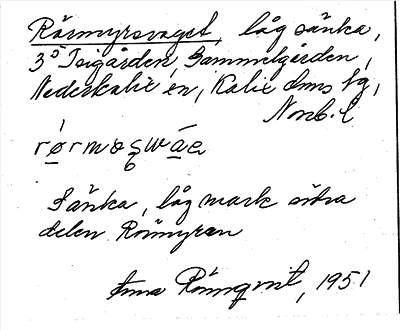 Rörmyrsvaget, låg sänka,
3⁵ Torgården, Gammelgården,
Nederkalix sn, Kalix dms lg,
Norrb. l
rørmøswáe
Sänka, låg mark södra
delen Rörmyran
Anna Rönnqvist, 1951